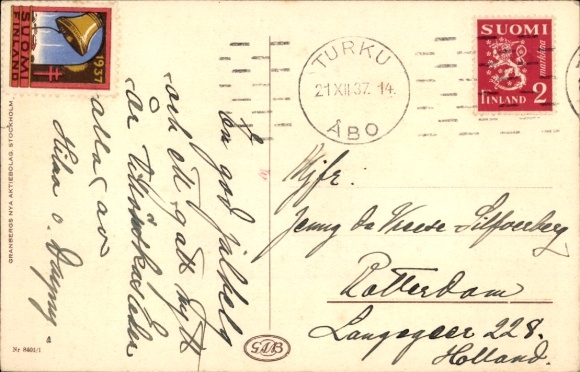 1937
SUOMI
FINLAND
TURKU
21.XII.37.14
ÅBO
SUOMI
markkaa
FINLAND 2
En god julhelg
och ett gott nytt
år tillönskas eder
alla av
Hilma o. Dagny.
Mjfr:
Jenny de Vreese Silfverberg
Rotterdam
Langegeer 228.
Holland.
GRANBERGS NYA AKTIEBOLAG, STOCKHOLM.
Nr 8401/1